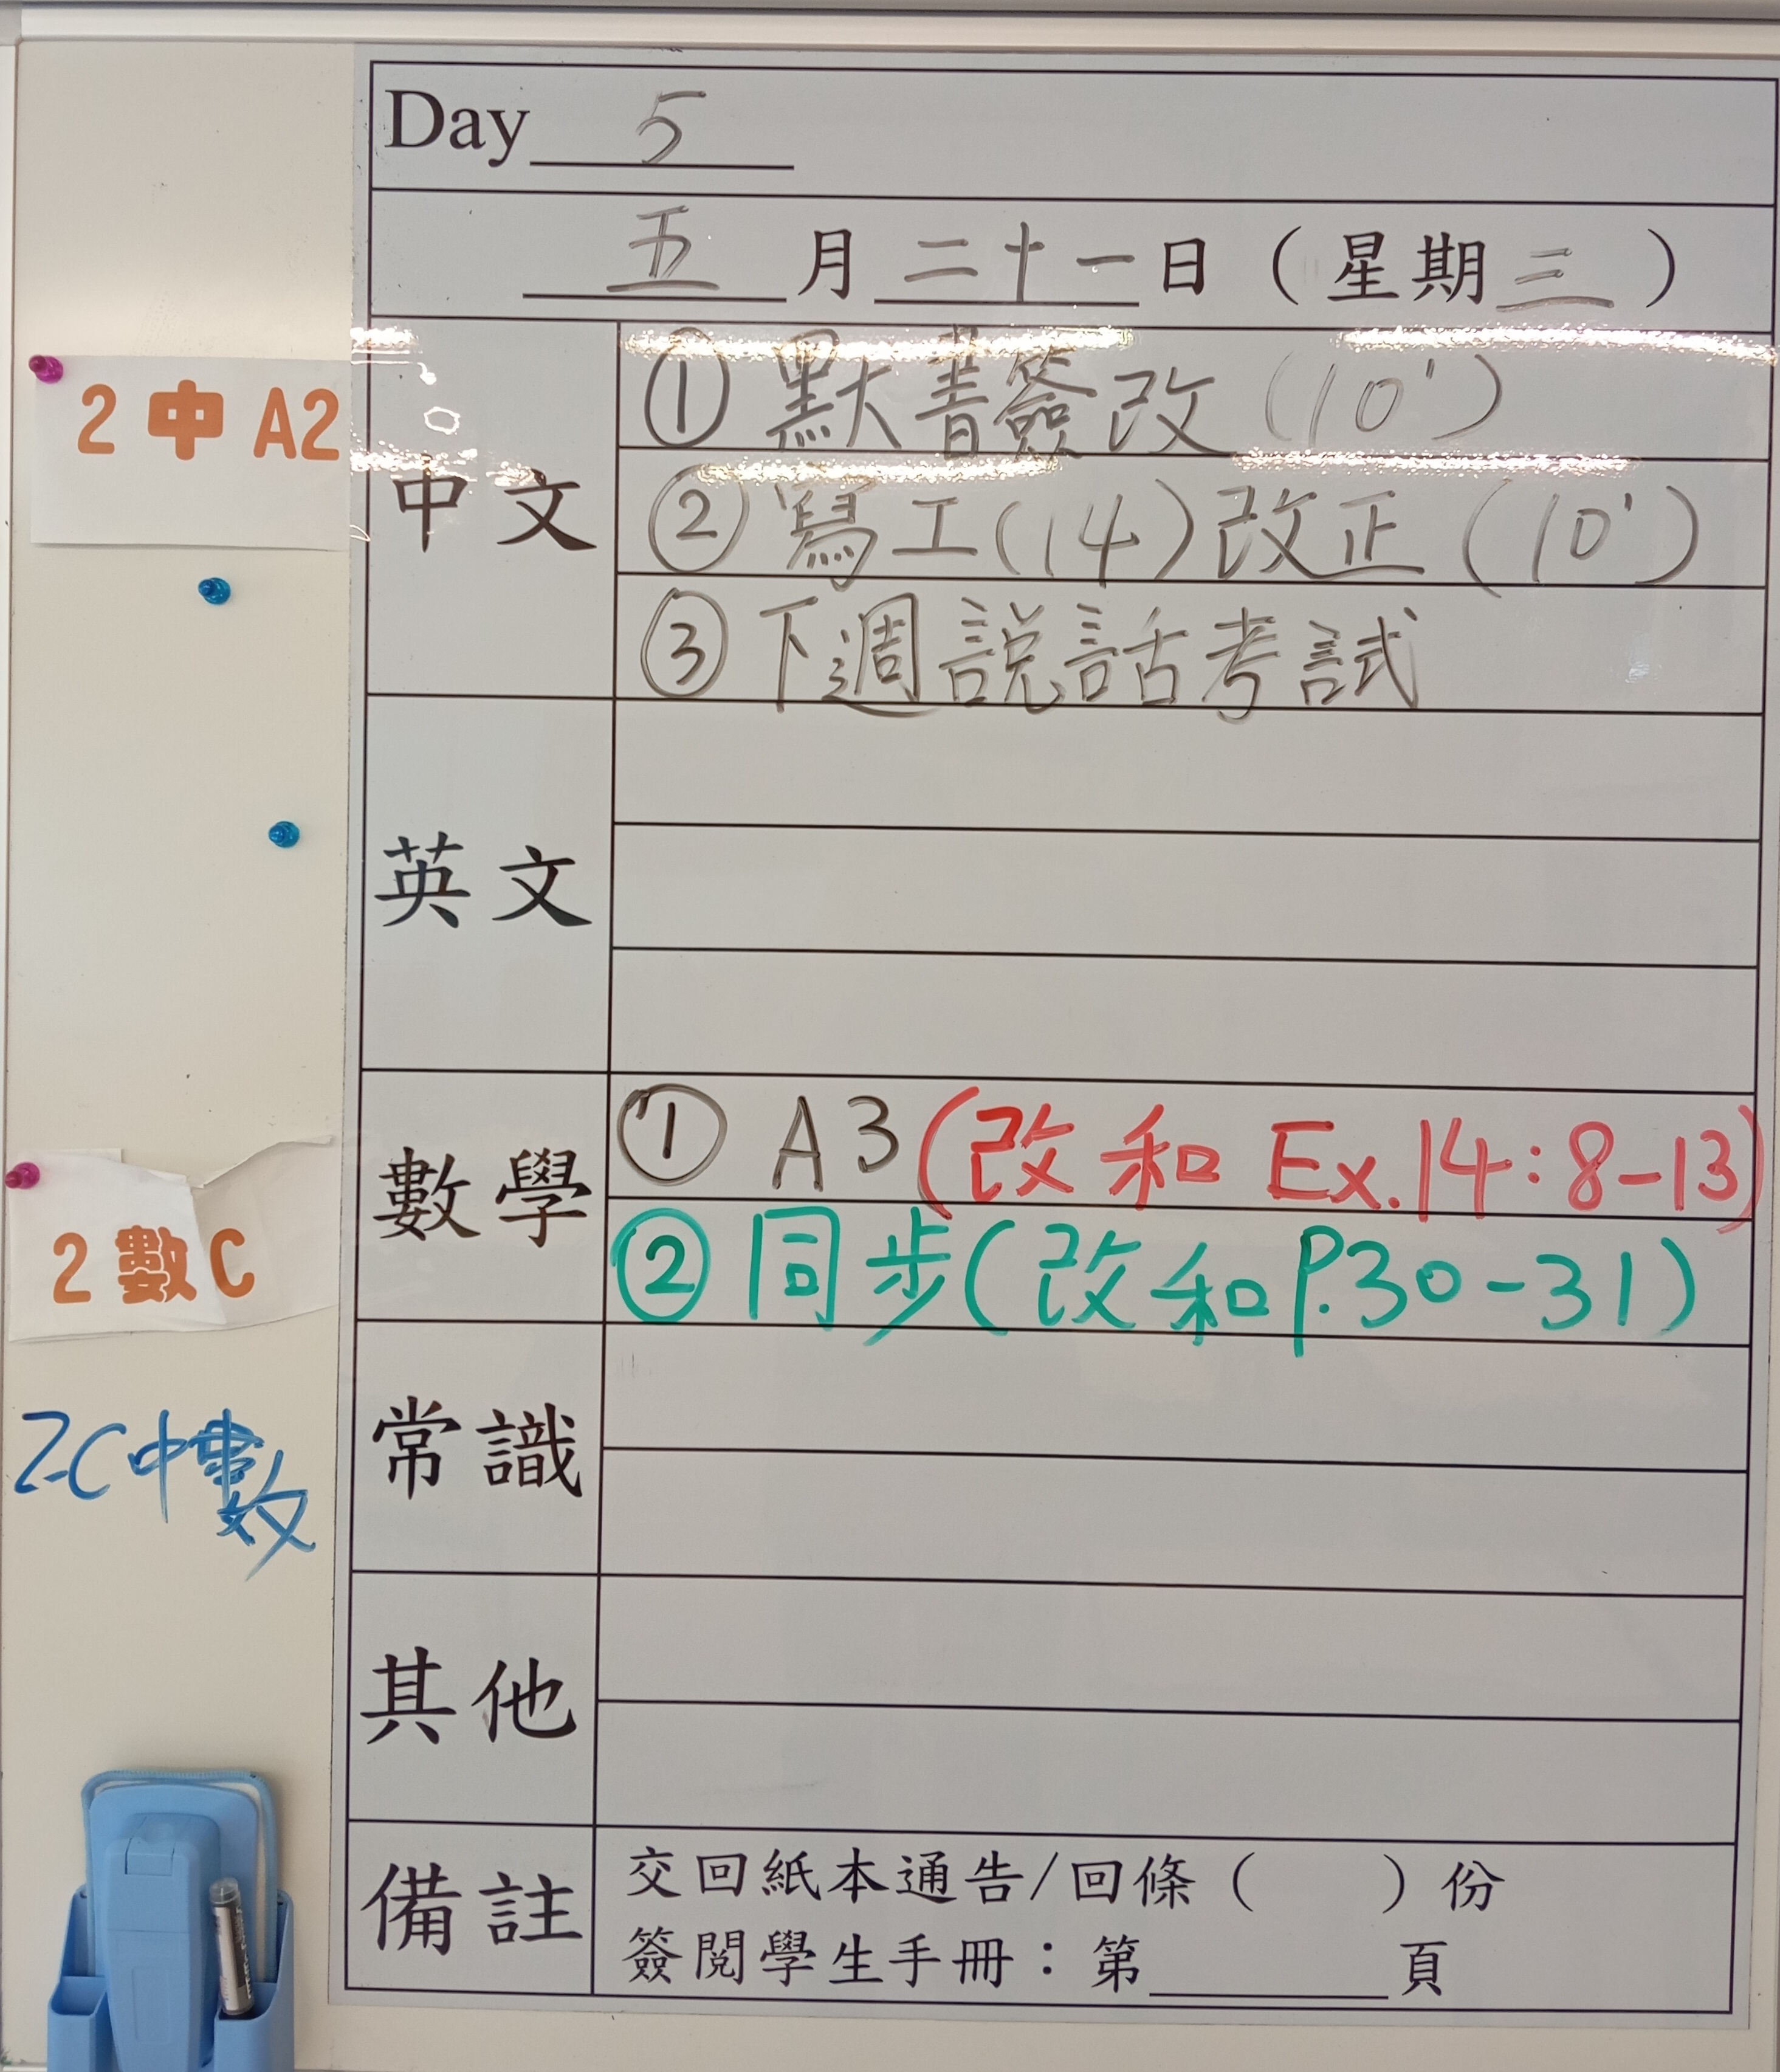 Day 5
五月二十一日（星期三）
2 中 A2
中文
① 默書簽改 (10')
② 寫工(14)改正 (10')
③ 下週說話考試
英文
數學
① A3 (改和 Ex.14:8-13)
② 同步(改和 P.30-31)
2 數 C
2C中數
常識
其他
備註
交回紙本通告/回條（　　）份
簽閱學生手冊：第______頁